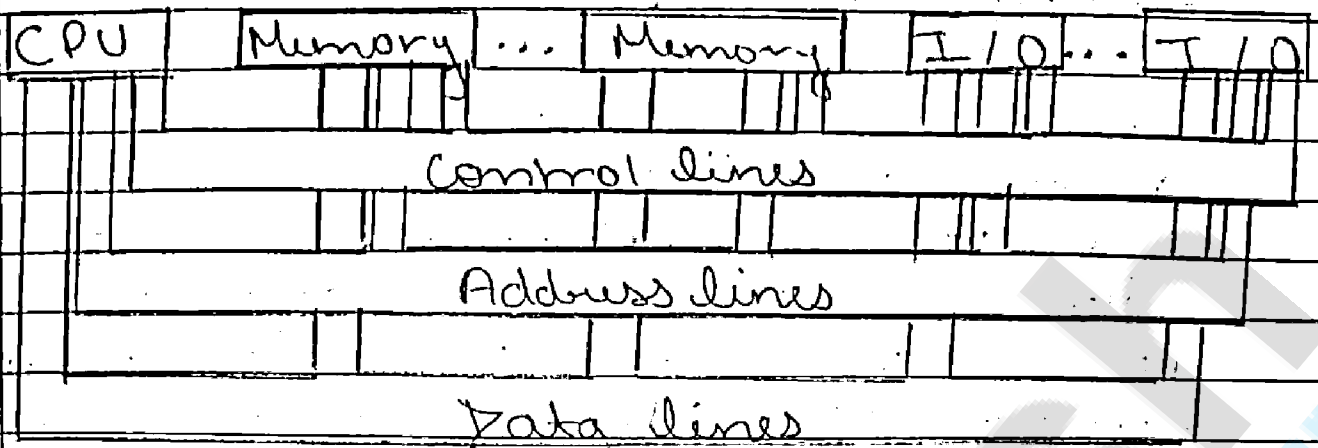 CPU Memory ... Memory I/O ... I/O
Control lines
Address lines
Data lines